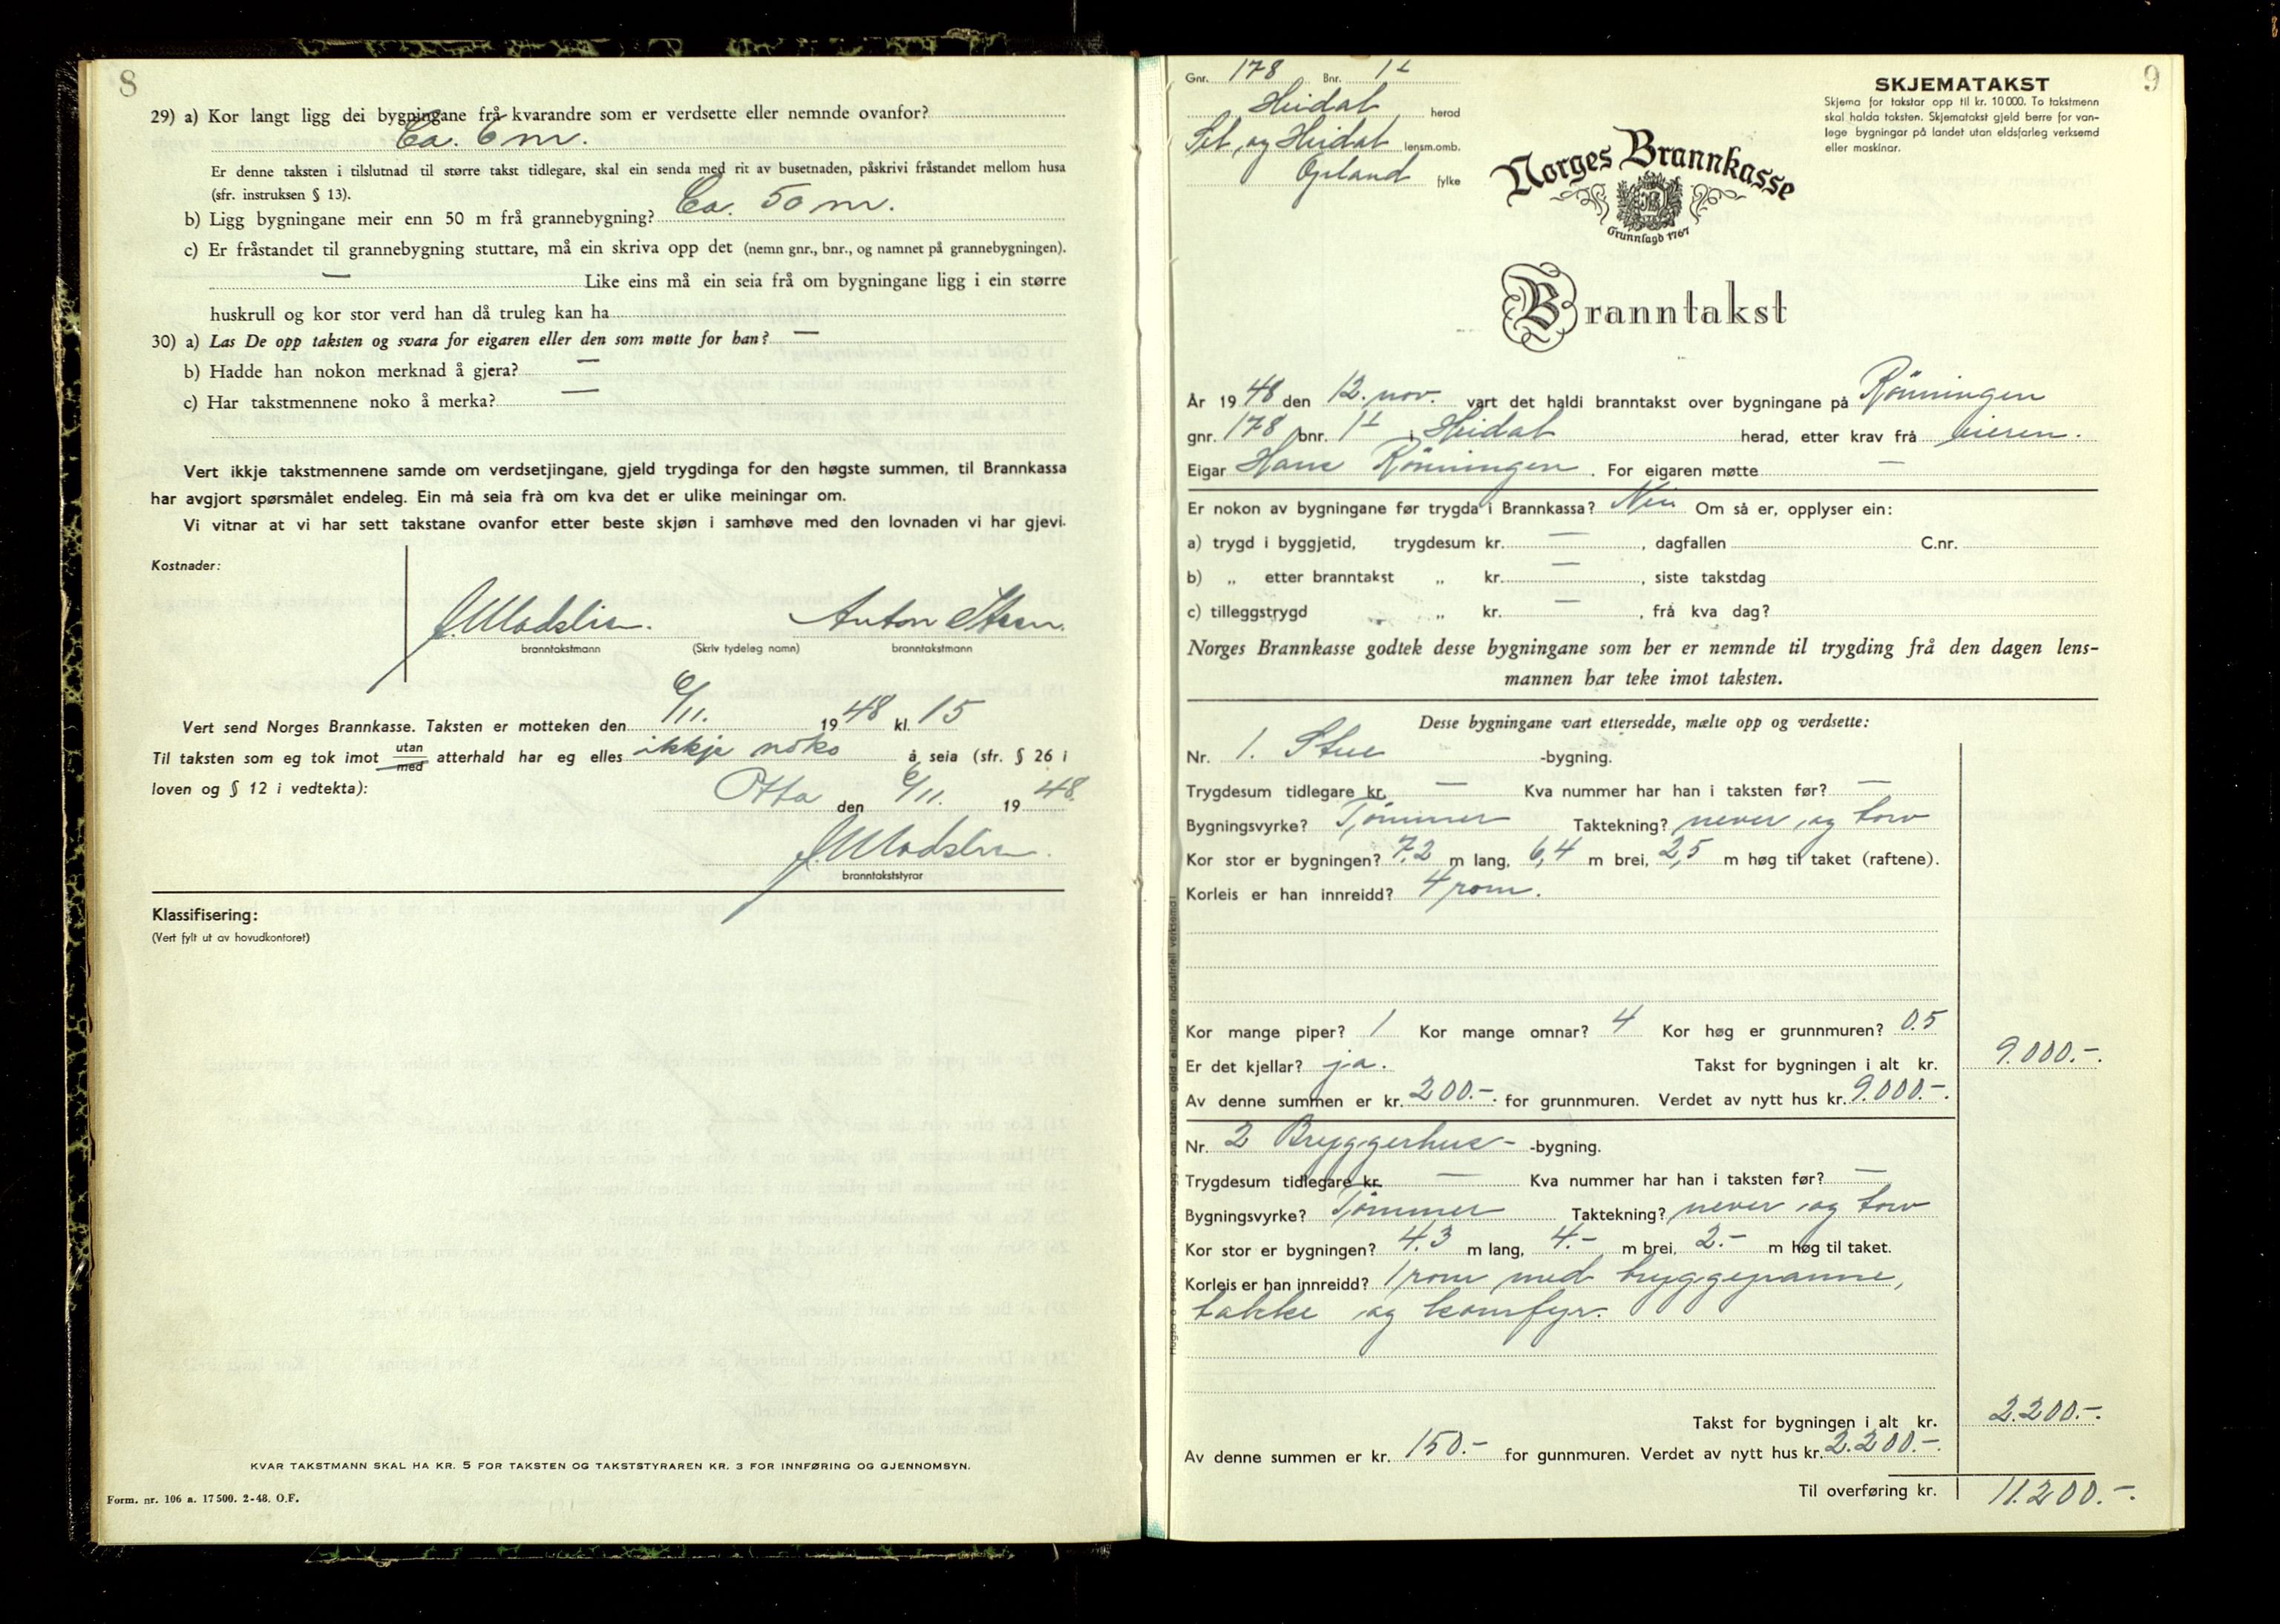 8
29) a) Kor langt ligg dei bygningane frå kvarandre som er verdsette eller nemnde ovanfor?
Ca. 6 m.
Er denne taksten i tilslutnad til større takst tidlegare, skal ein senda med rit av busetnaden, påskrivi fråstandet mellom husa
(sfr. instruksen § 13).
b) Ligg bygningane meir enn 50 m frå grannebygning? Ca. 50 m.
c) Er fråstandet til grannebygning stuttare, må ein skriva opp det (nemn gnr., bnr., og namnet på grannebygningen).
— Like eins må ein seia frå om bygningane ligg i ein større
huskrull og kor stor verd han då truleg kan ha
30) a) Las De opp taksten og svara for eigaren eller den som møtte for han? —
b) Hadde han nokon merknad å gjera? —
c) Har takstmennene noko å merka? —
Vert ikkje takstmennene samde om verdsetjingane, gjeld trygdinga for den høgste summen, til Brannkassa
har avgjort spørsmålet endeleg. Ein må seia frå om kva det er ulike meiningar om.
Vi vitnar at vi har sett takstane ovanfor etter beste skjøn i samhøve med den lovnaden vi har gjevi.
Kostnader:
J. Modslien. Anton Steen.
branntakstmann (Skriv tydeleg namn) branntakstmann
Vert send Norges Brannkasse. Taksten er motteken den 6/11. 1948 kl. 15
Til taksten som eg tok imot utan/med atterhald har eg elles ikkje noko å seia (sfr. § 26 i
loven og § 12 i vedtekta):
Otta den 6/11. 1948.
J. Modslien.
branntakststyrar
Klassifisering:
(Vert fylt ut av hovudkontoret)
KVAR TAKSTMANN SKAL HA KR. 5 FOR TAKSTEN OG TAKSTSTYRAREN KR. 3 FOR INNFØRING OG GJENNOMSYN.
Form. nr. 106 a. 17 500. 2-48. O.F.
9
Gnr. 178 Bnr. 11
Heidal herad
Sel og Heidal lensm.omb.
Opland fylke
SKJEMATAKST
Skjema for takstar opp til kr. 10 000. To takstmenn
skal halda taksten. Skjematakst gjeld berre for van-
lege bygningar på landet utan eldsfarleg verksemd
eller maskinar.
Norges Brannkasse
Grunnlagd 1767
Branntakst
År 1948 den 12. nov. vart det haldi branntakst over bygningane på Rönningen
gnr. 178 bnr. 11 i Heidal herad, etter krav frå eieren.
Eigar Hans Rönningen. For eigaren møtte —
Er nokon av bygningane før trygda i Brannkassa? Nei Om så er, opplyser ein:
a) trygd i byggjetid, trygdesum kr. — , dagfallen C.nr.
b) „ etter branntakst „ kr. — , siste takstdag
c) tilleggstrygd „ kr. — , frå kva dag?
Norges Brannkasse godtek desse bygningane som her er nemnde til trygding frå den dagen lens-
mannen har teke imot taksten.
Desse bygningane vart ettersedde, mælte opp og verdsette:
Nr. 1. Stue -bygning.
Trygdesum tidlegare kr. — Kva nummer har han i taksten før? —
Bygningsvyrke? Tömmer Taktekning? never og torv
Kor stor er bygningen? 7,2 m lang, 6,4 m brei, 2,5 m høg til taket (raftene).
Korleis er han innreidd? 4 rom.
Kor mange piper? 1 Kor mange omnar? 4 Kor høg er grunnmuren? 0.5
Er det kjellar? ja. Takst for bygningen i alt kr. 9.000.-.
Av denne summen er kr. 200.- for grunnmuren. Verdet av nytt hus kr. 9.000.-.
Nr. 2 Bryggerhus- -bygning.
Trygdesum tidlegare kr. — Kva nummer har han i taksten før? —
Bygningsvyrke? Tömmer Taktekning? never og torv
Kor stor er bygningen? 4.3 m lang, 4.- m brei, 2.- m høg til taket.
Korleis er han innreidd? 1 rom med bryggepanne,
takke og komfyr.
Takst for bygningen i alt kr. 2.200.-.
Av denne summen er kr. 150.- for gunnmuren. Verdet av nytt hus kr. 2.200.-.
Til overføring kr. 11.200.-.